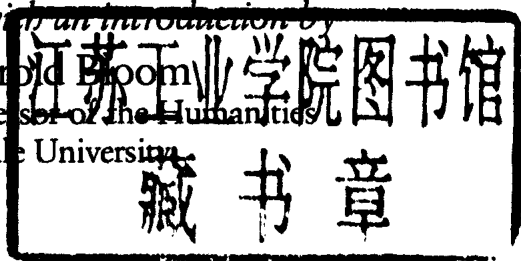 ith an introduction by
rold Bloom
essor of the Humanities
le University
江苏工业学院图书馆
藏书章